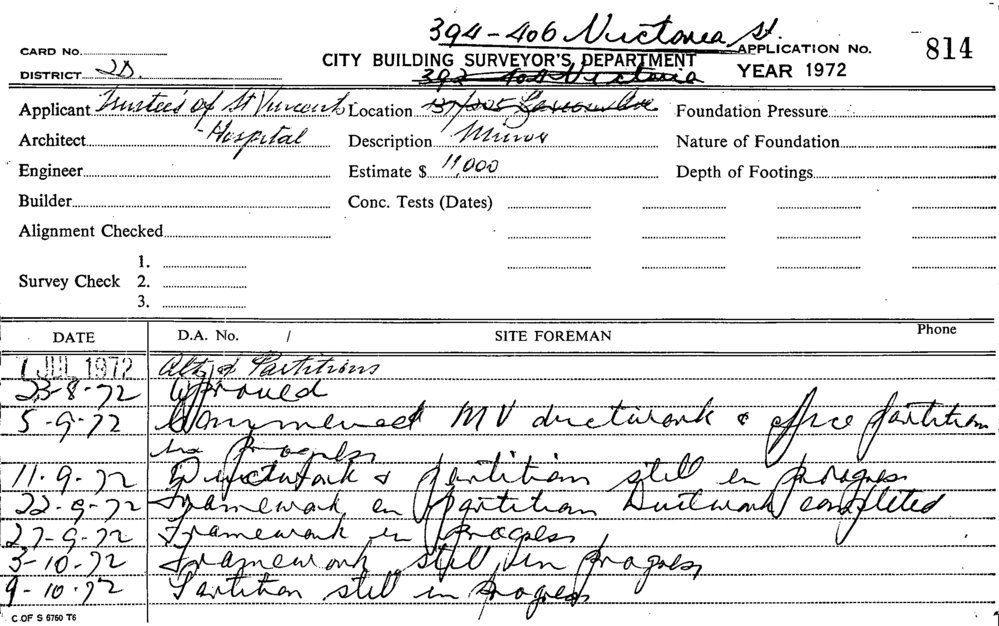 394-406 Victoria St.
CARD No.
CITY BUILDING SURVEYOR'S DEPARTMENT
APPLICATION No. 814
DISTRICT 2D.
392-408 Victoria
YEAR 1972
Applicant Trustees of St Vincent Location Foundation Pressure
Architect Hospital Description Minor Nature of Foundation
Engineer Estimate $ 11,000 Depth of Footings
Builder Conc. Tests (Dates)
Alignment Checked
1.
Survey Check 2.
3.
DATE D.A. No. / SITE FOREMAN Phone
1 JUL 1972 Alts & Partitions
23-8-72 Approved
5-9-72 Commenced MV ductwork & office partition
in progress
11-9-72 Ductwork & partition still in progress
22-9-72 Framework en partition Ductwork completed
27-9-72 Framework in progress
3-10-72 Framework still in progress
9-10-72 Partition still in progress
C OF S 6760 T6